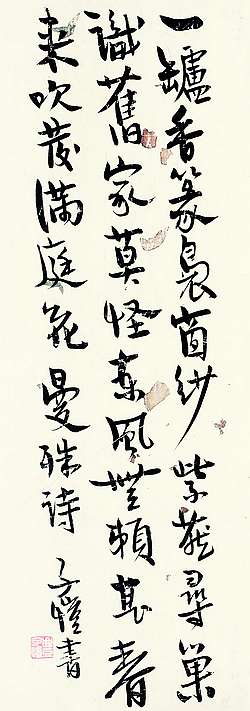 一罏香篆裊窗紗紫燕尋巢
識舊家莫怪東風無賴甚春
來吹發滿庭花曼殊詩 子愷書